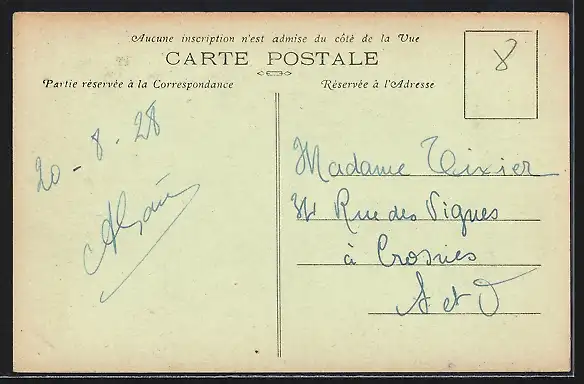 Aucune inscription n'est admise du côté de la Vue
CARTE POSTALE
Partie réservée à la Correspondance
Réservée à l'Adresse
8
20-8-28
Madame Tixier
Rue des Vignes
à Crosnes
S et O